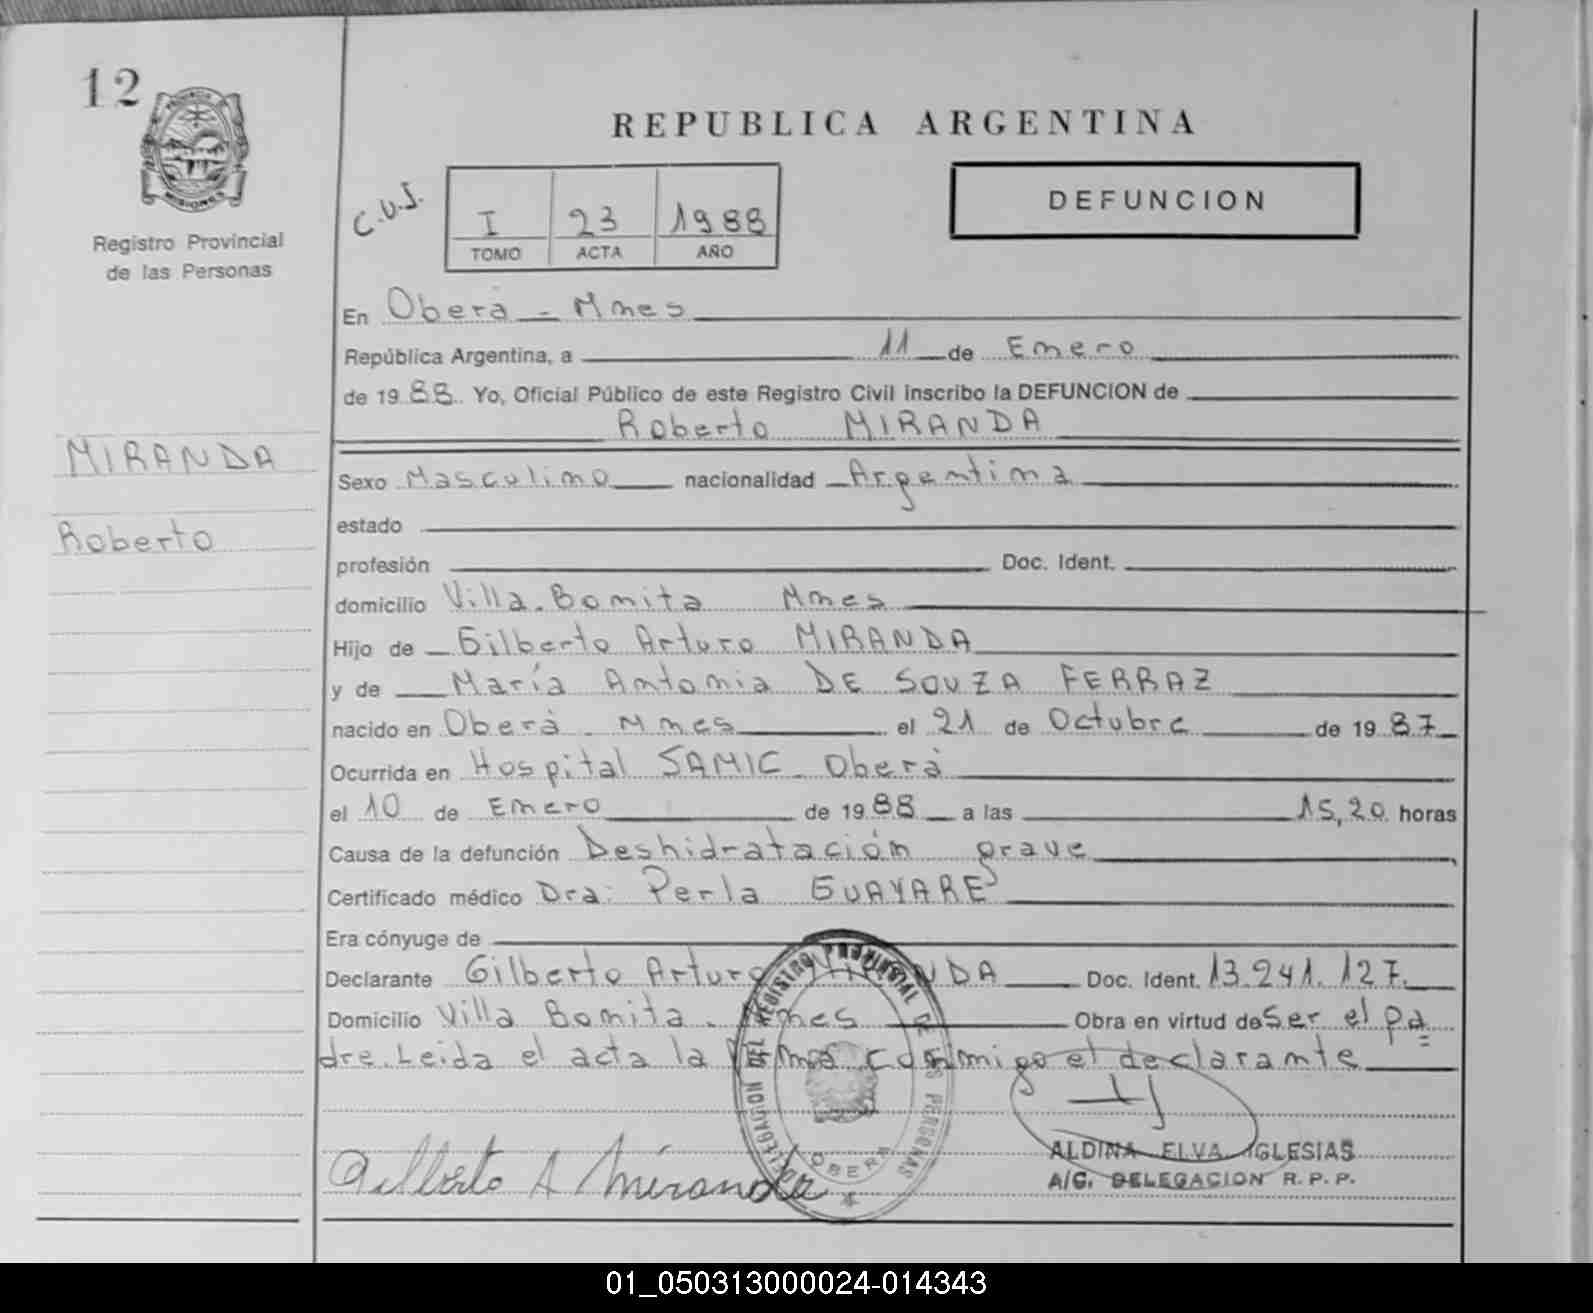 12
PROVINCIA
MISIONES
Registro Provincial
de las Personas
REPUBLICA ARGENTINA
C.U.I.
I 23 1988
TOMO ACTA AÑO
DEFUNCION
En Oberá - Mnes
República Argentina, a 11 de Enero
de 1988. Yo, Oficial Público de este Registro Civil inscribo la DEFUNCION de
Roberto MIRANDA
MIRANDA
Roberto
Sexo Masculino nacionalidad Argentina
estado
profesión Doc. Ident.
domicilio Villa Bonita Mnes
Hijo de Gilberto Arturo MIRANDA
y de María Antonia DE SOUZA FERRAZ
nacido en Oberá Mnes el 21 de Octubre de 1987
Ocurrida en Hospital SAMIC Oberá
el 10 de Enero de 1988 a las 15,20 horas
Causa de la defunción Deshidratación grave
Certificado médico Dra: Perla GUAYARE
Era cónyuge de
Declarante Gilberto Arturo MIRANDA Doc. Ident. 13.241.127.
Domicilio Villa Bonita. Mnes Obra en virtud de Ser el pa
dre. Leida el acta la firma conmigo el declarante
DELEGACION DEL REGISTRO PROVINCIAL DE LAS PERSONAS
OBERA
Gilberto A Miranda
ALDINA ELVA IGLESIAS
A/C. DELEGACION R.P.P.
01_050313000024-014343